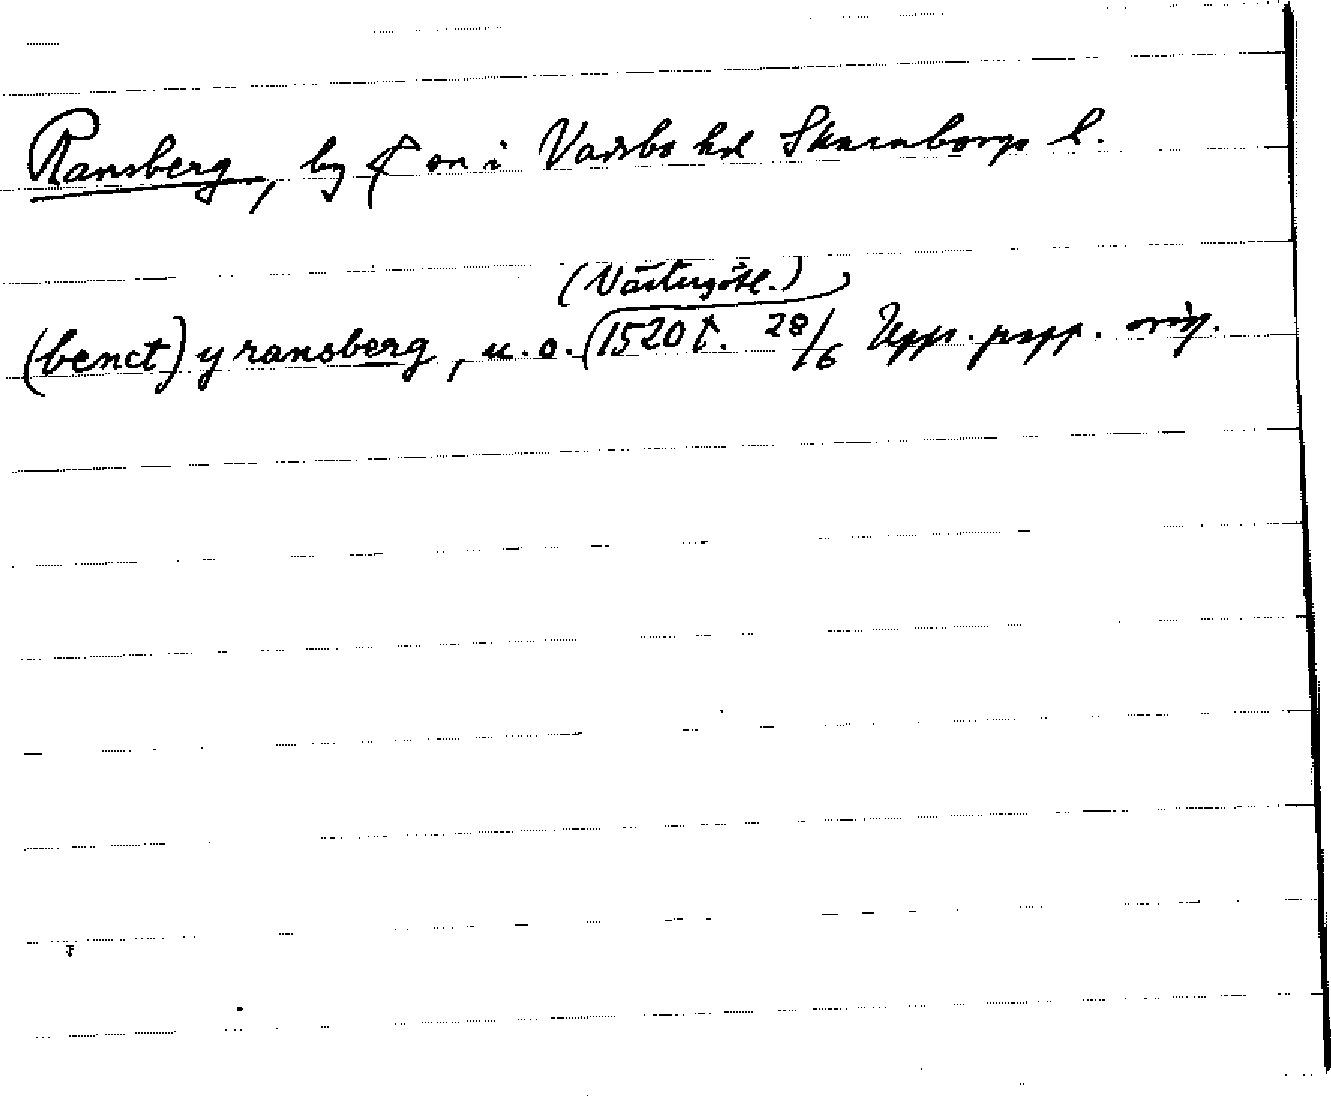 Ransberg, by & sn i Vadsbo hd Skaraborgs l.
(Västergötl.)
(benct) y ransberg, u. o. 1520 t. 28/6 Upps. papp. orig.